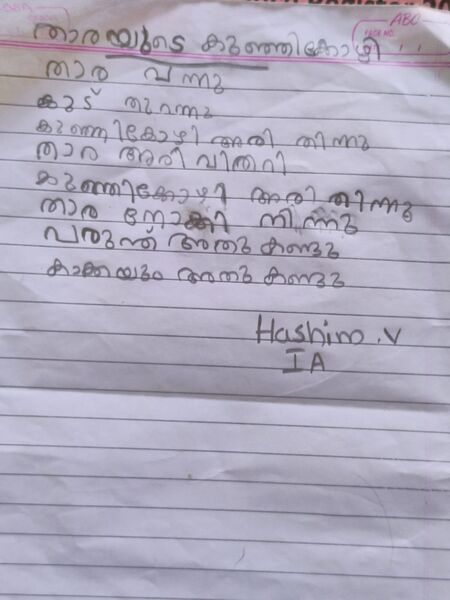 ABC
താരയുടെ കുഞ്ഞികോഴി
താര വന്നു
കൂട് തുറന്നു
കുഞ്ഞികോഴി അരി തിന്നു
താര അരി വിതറി
കുഞ്ഞികോഴി അരി തിന്നു
താര നോക്കി നിന്നു
പരുന്ത് അതു കണ്ടു
കാക്കയും അതു കണ്ടു
Hashim.V
I A